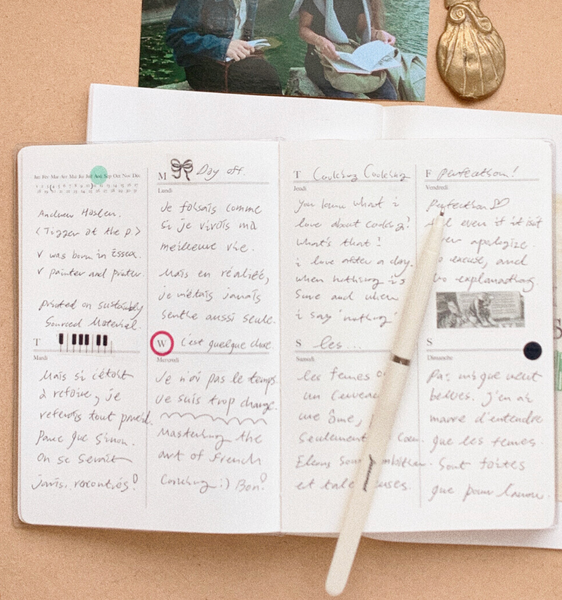 Jan Fév Mar Avr Mai Jui Jul Aoû Sep Oct Nov Déc
Andrew Haslen.
(Tigger at the p.)
v was born in Essex.
v painter and printer.
printed on sustainably
Sourced Material.
T
Mardi
Mais si c'était
à refaire, je
referais tout pareil.
Parce que sinon.
On se serait
jamais rencontrés!
M Day off.
Lundi
Je faisais comme
si je vivais ma
meilleure vie.
Mais en réalité,
je m'étais jamais
sentie aussi seule.
W C'est quelque chose
Mercredi
Je n'ai pas le temps
Je suis trop changé.
Mastering the
art of French
Cooking :) Bon!
T Cooking Cooking
Jeudi
you know what i
love about cooking?
what's that!
i love after a day.
when nothing is
Sure and when
i say 'nothing'
S les...
Samedi
les femes
un cerveau
une âme,
Seulement Cœur.
Elens sont
et tale uses.
F Perfection!
Vendredi
Perfection
even if it isn't
never apologize.
No excuse, and
No explanations
S
Dimanche
Pas que veut
belles. J'en ai
marre d'entendre
que les femes.
Sont faites
que pour l'amour.